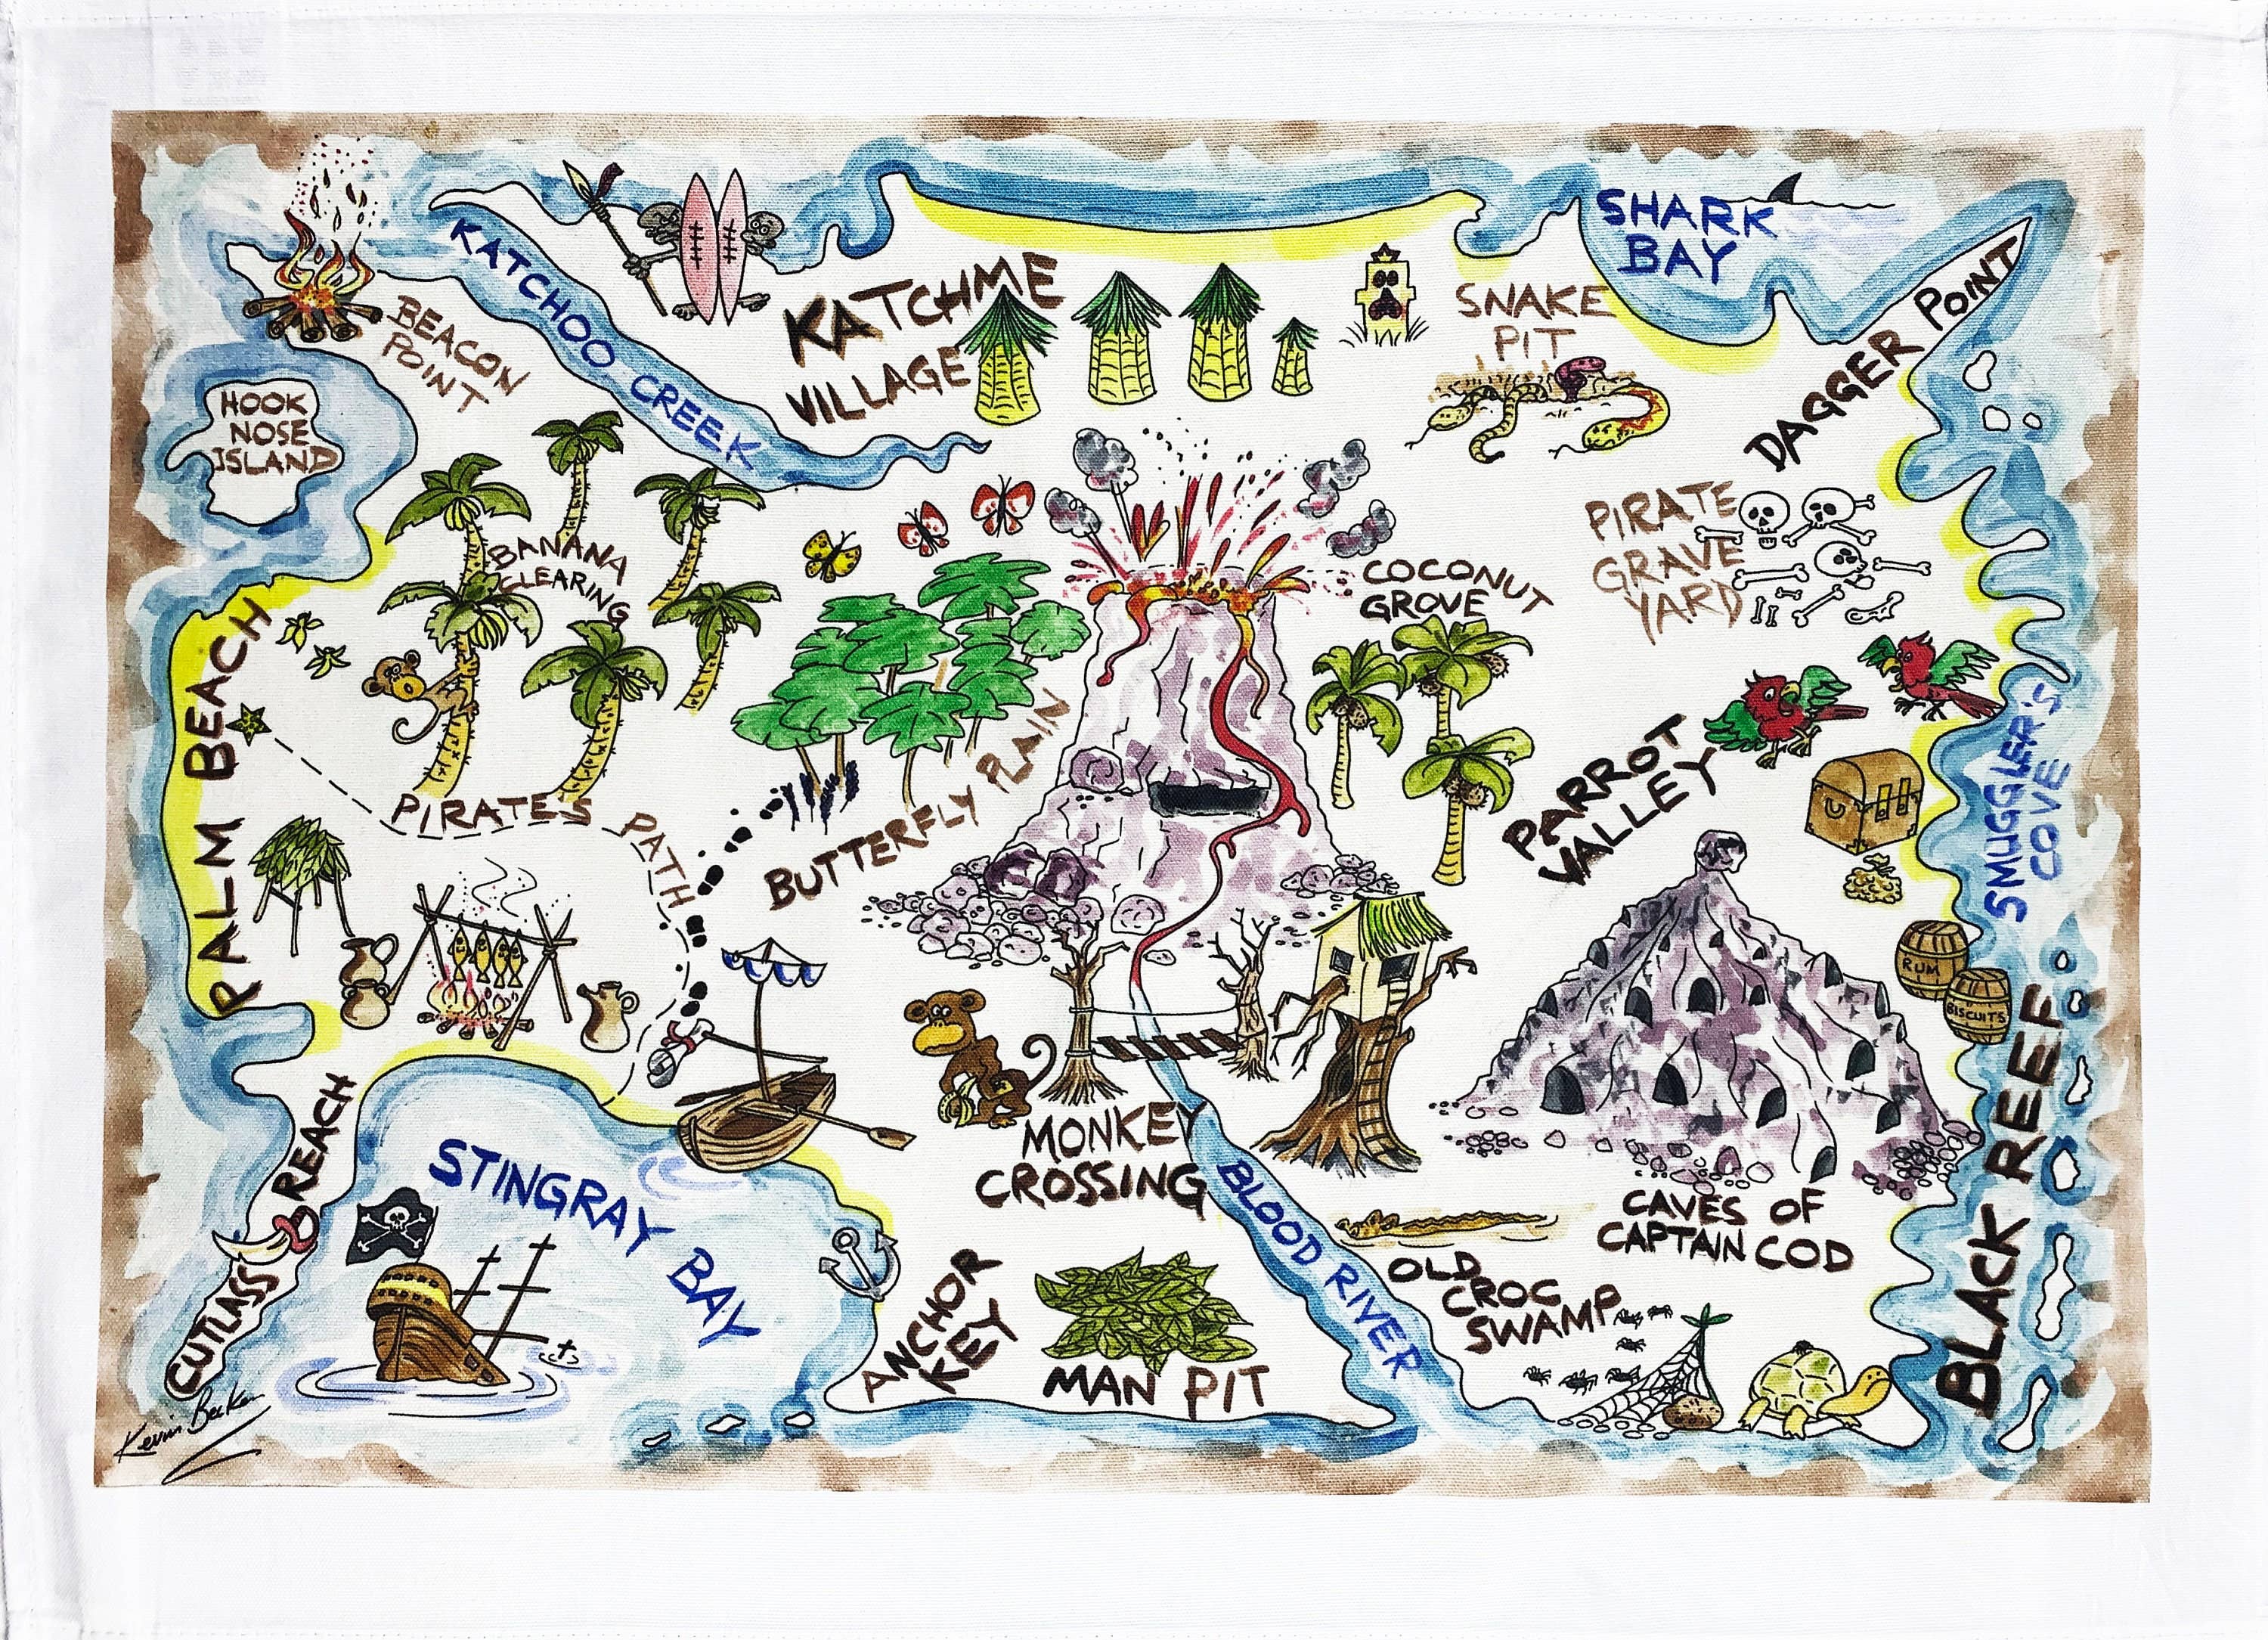 SHARK
BAY
KATCHOO CREEK
KATCHME
VILLAGE
SNAKE
PIT
DAGGER POINT
BEACON
POINT
HOOK
NOSE
ISLAND
BANANA
CLEARING
PIRATE
GRAVE
YARD
COCONUT
GROVE
PALM BEACH
BUTTERFLY PLAIN
PARROT
VALLEY
SMUGGLER'S
COVE
PIRATE'S PATH
RUM
BISCUITS
BLACK REEF
MONKEY
CROSSING
CUTLASS REACH
STINGRAY BAY
BLOOD RIVER
CAVES OF
CAPTAIN COD
OLD
CROC
SWAMP
ANCHOR
KEY
MAN PIT
Kevin Becken